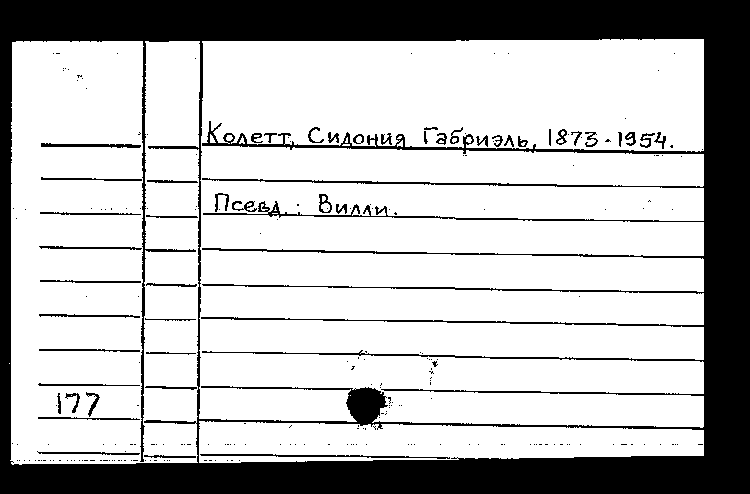 Колетт, Сидония Габриэль, 1873-1954.
Псевд.: Вилли.
177